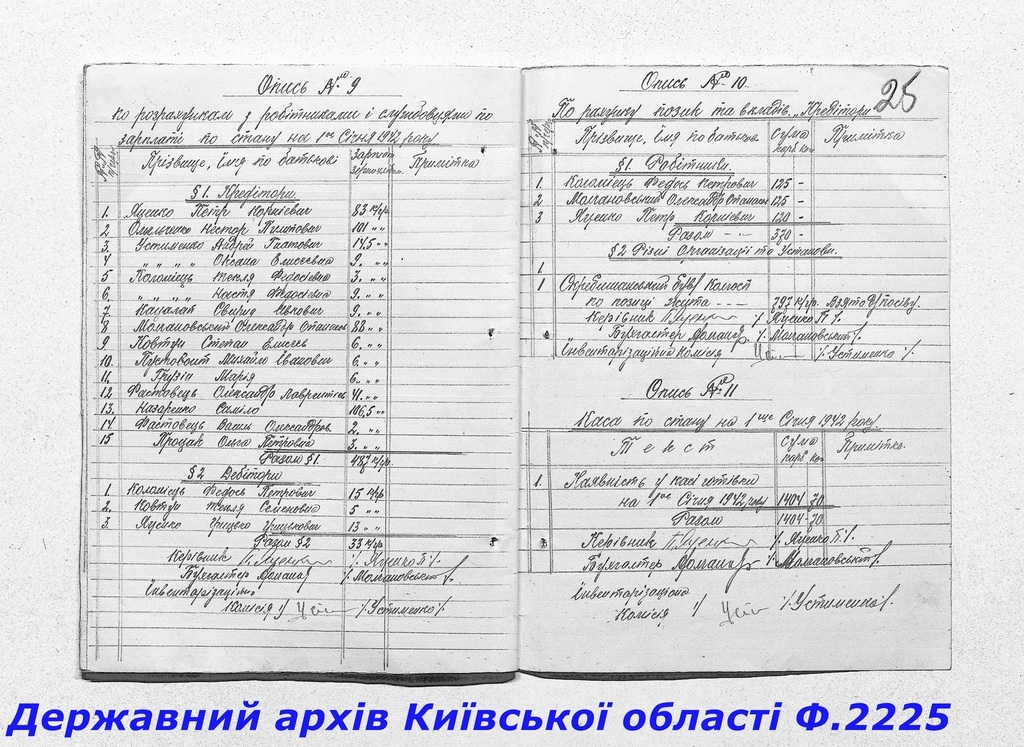 Опись № 9
по розрахункам з робітниками і службовцями по
зарплаті по стану на 1ше Січня 1942 року
Прізвище, ім'я по батькові Примітка
§ 1. Кредітори.
1. Яценко Петр Корнієвич 83 к/гр.
2 Омельченко Нестор Пилипович 101 " "
3. Устименко Андрей Гнатович 14,5 " "
4 " " " " Оксана Елисеевна 9. " "
5 Коломієць Текля Федосієвна 3. " "
6. " " " " Настя Федосієвна 9. " "
7. Свирид 9. " "
8 Молчановський Олександр 88 " "
9 Ковтун Степан 6. " "
10. Михайло Іванович 6. " "
11. Грузін Марія 6. " "
12 Фастовець Олександр 41. " "
13. Назаренко Саміло 106,5 " "
14 Фастовець Васил Олександров. 2. " "
15 Процак Ольга Петровна 3. " "
Разом § 1. 487 к/гр.
§ 2 Дебітори
1. Коломієць Федось Петрович 15 к/гр
2. Ковтун Текля Семеновна 5 " "
3. Яценко Грицько Грицькович 13 " "
Разом § 2 33 к/гр
Керівник /. Яценко П /.
Бухгалтер /. Молчановський /.
Інвентарізаційна
Комісія /. Устименко /.
25
Опись № 10
По рахунку позик та вкладів. "Кредітори"
Прізвище, Ім'я по батькові Сума карб коп Примітка
§ 1. Робітники.
1. Коломієць Федось Петрович 125 -
2 Молчановський Олександр 125 -
3 Яценко Петр Корнієвич 120 -
Разом - - 370 -
§ 2 Різні Організації та Установи.
1.
1 Скребишанський Колгосп
по позиці жита - - - 797 к/гр. Взято в/посіву.
Керівник /. Яценко П /.
Бухгалтер /. Молчановський /.
Інвентарізаційна комісія /. Устименко /.
Опись № 11
Каса по стану на 1ше Січня 1942 року.
Текст Сума карб коп Примітка.
1. Наявність у касі готівки
на 1ше Січня 1942 року 1404 - 70
Разом 1404 - 70
Керівник /. Яценко П /.
Бухгалтер /. Молчановський /.
Інвентарізаційна
Комісія /. Устименко /.
Державний архів Київської області Ф.2225